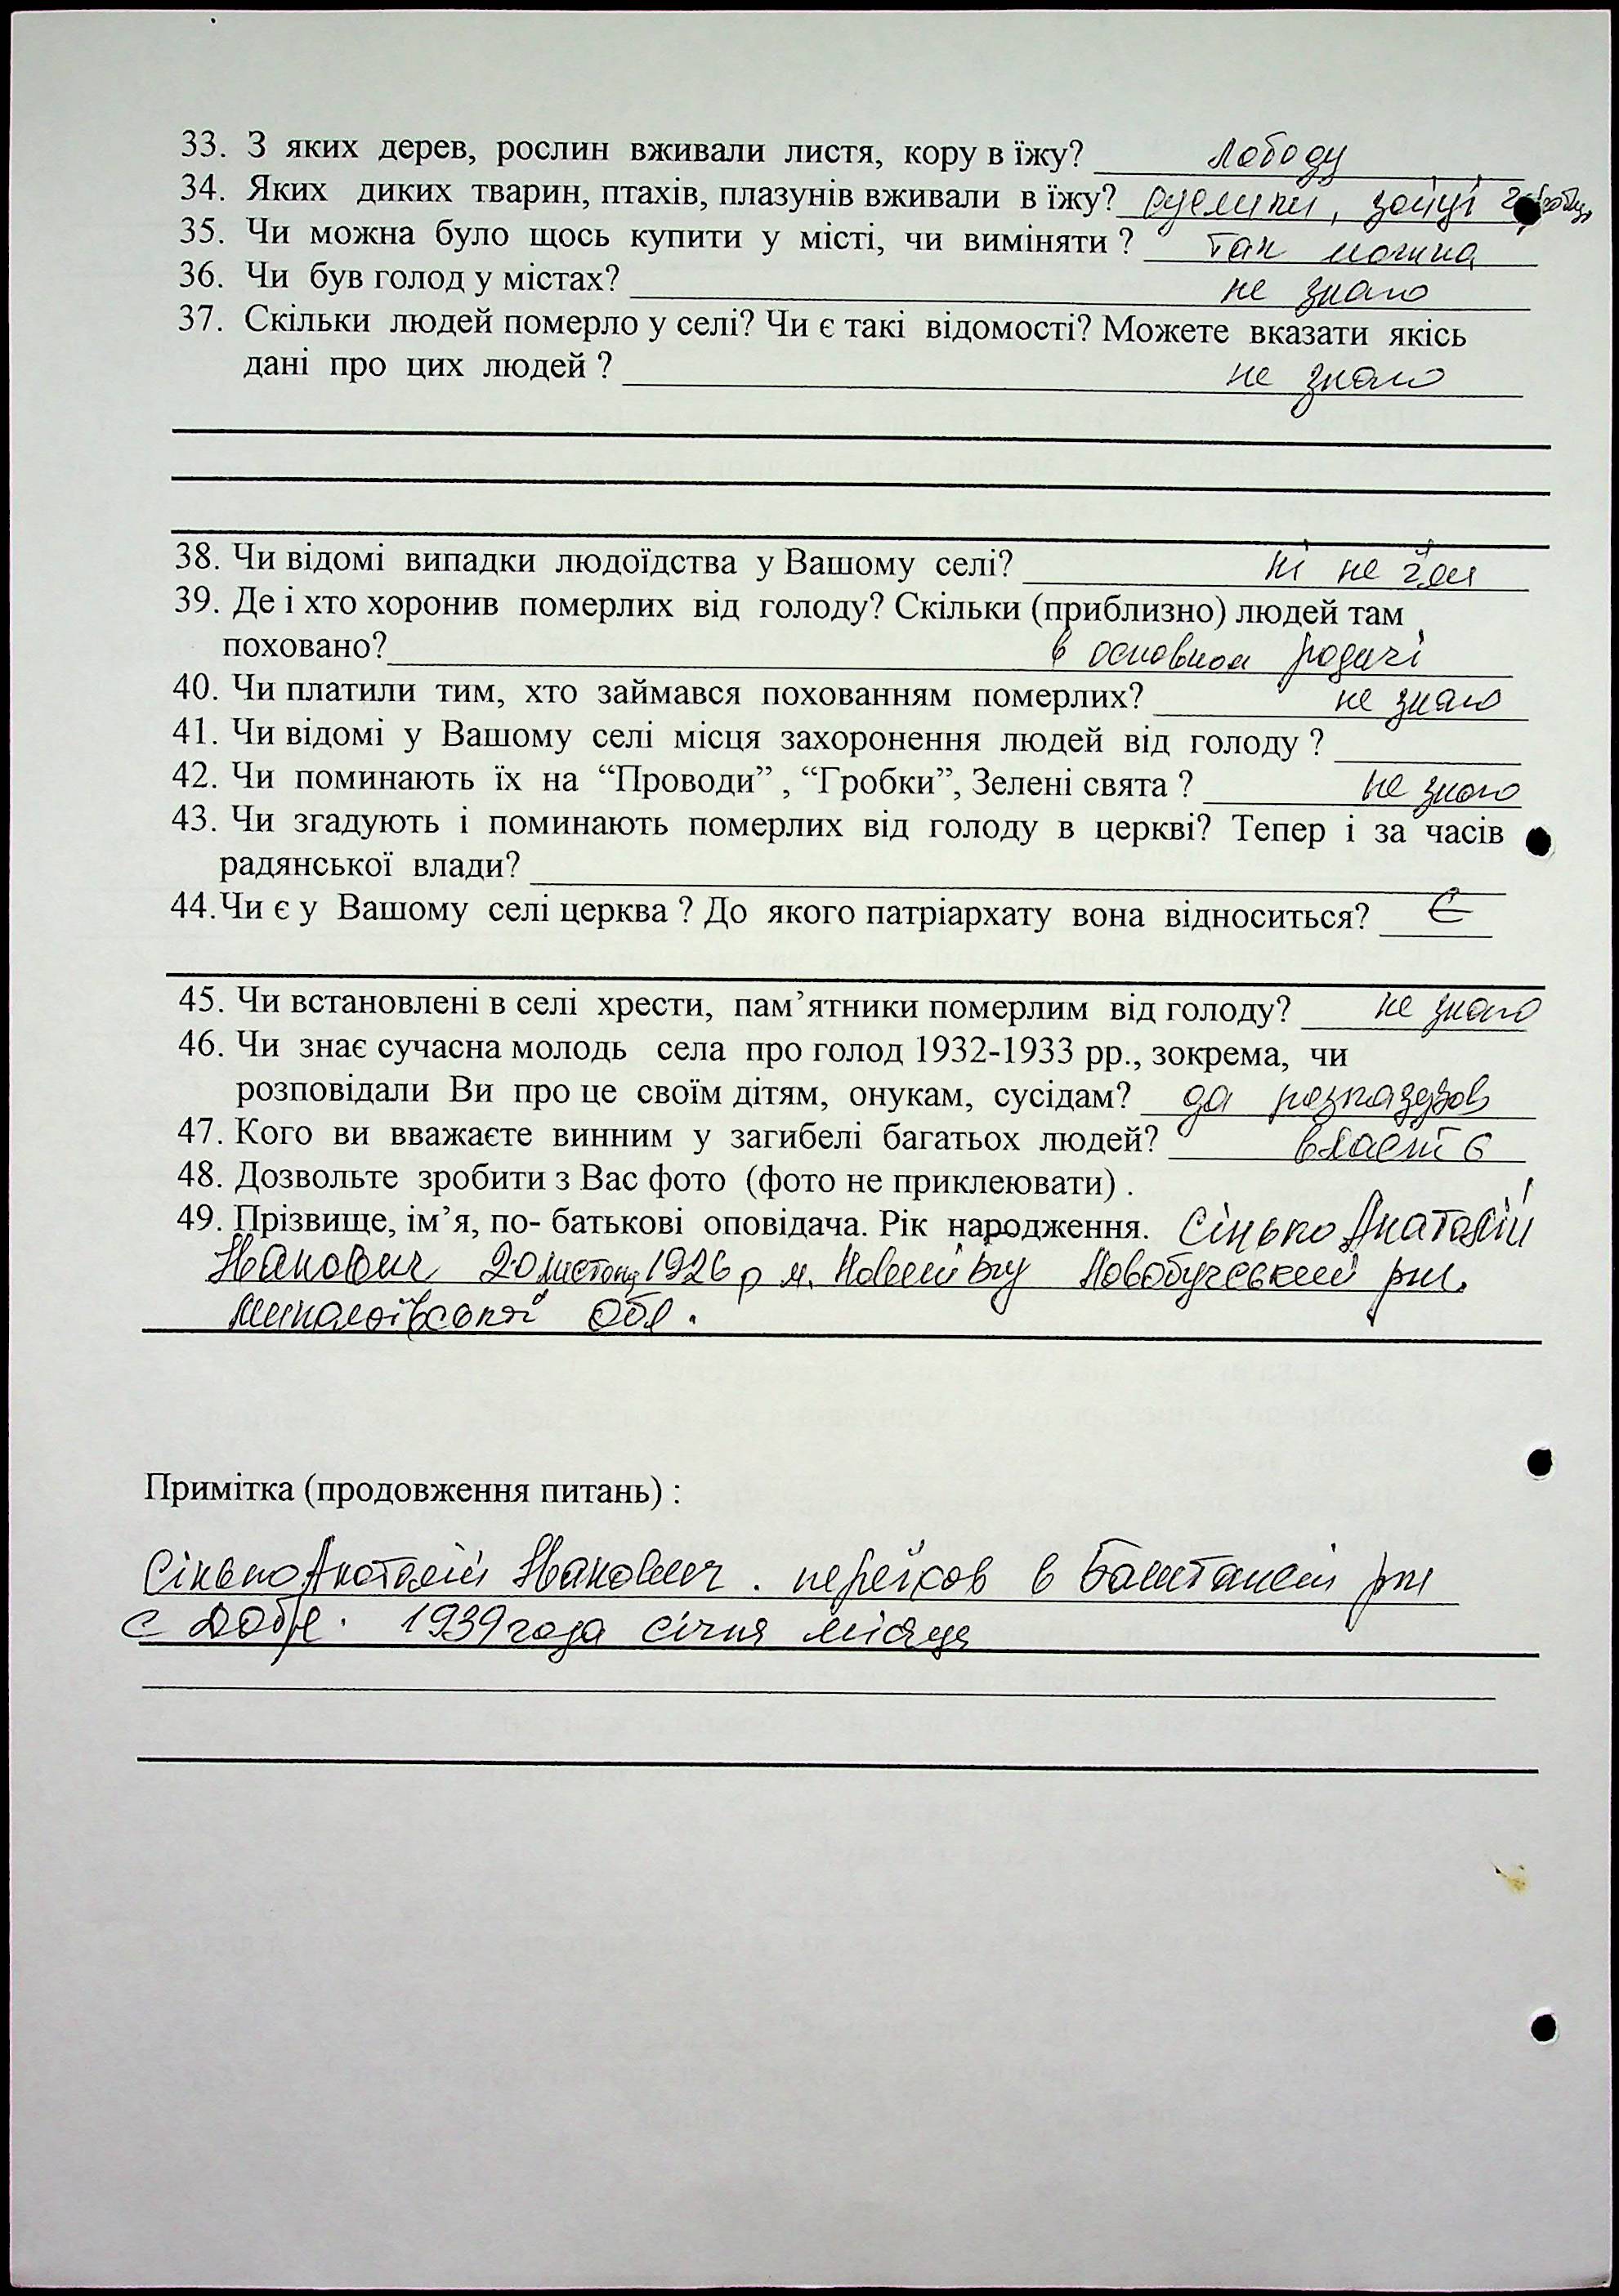 33. З яких дерев, рослин вживали листя, кору в їжу? лободу
34. Яких диких тварин, птахів, плазунів вживали в їжу? зойці
35. Чи можна було щось купити у місті, чи виміняти ? так можна
36. Чи був голод у містах? не знаю
37. Скільки людей померло у селі? Чи є такі відомості? Можете вказати якісь
дані про цих людей ? не знаю
38. Чи відомі випадки людоїдства у Вашому селі? ні не
39. Де і хто хоронив померлих від голоду? Скільки (приблизно) людей там
поховано? в основном родичі
40. Чи платили тим, хто займався похованням померлих? не знаю
41. Чи відомі у Вашому селі місця захоронення людей від голоду ?
42. Чи поминають їх на “Проводи” , “Гробки”, Зелені свята ? не знаю
43. Чи згадують і поминають померлих від голоду в церкві? Тепер і за часів
радянської влади?
44.Чи є у Вашому селі церква ? До якого патріархату вона відноситься? Є
45. Чи встановлені в селі хрести, пам’ятники померлим від голоду? не знаю
46. Чи знає сучасна молодь села про голод 1932-1933 рр., зокрема, чи
розповідали Ви про це своїм дітям, онукам, сусідам? да розказував
47. Кого ви вважаєте винним у загибелі багатьох людей?
48. Дозвольте зробити з Вас фото (фото не приклеювати) .
49. Прізвище, ім’я, по- батькові оповідача. Рік народження. Сінько Анатолій
Иванович 20 листопад 1926 р м. Новий Буг Новобугський рн.
Миколаївської Обл.
Примітка (продовження питань) :
Сінько Анатолій Иванович . переїхов в Баштанский рн
с Добре. 1939 года січня місяця